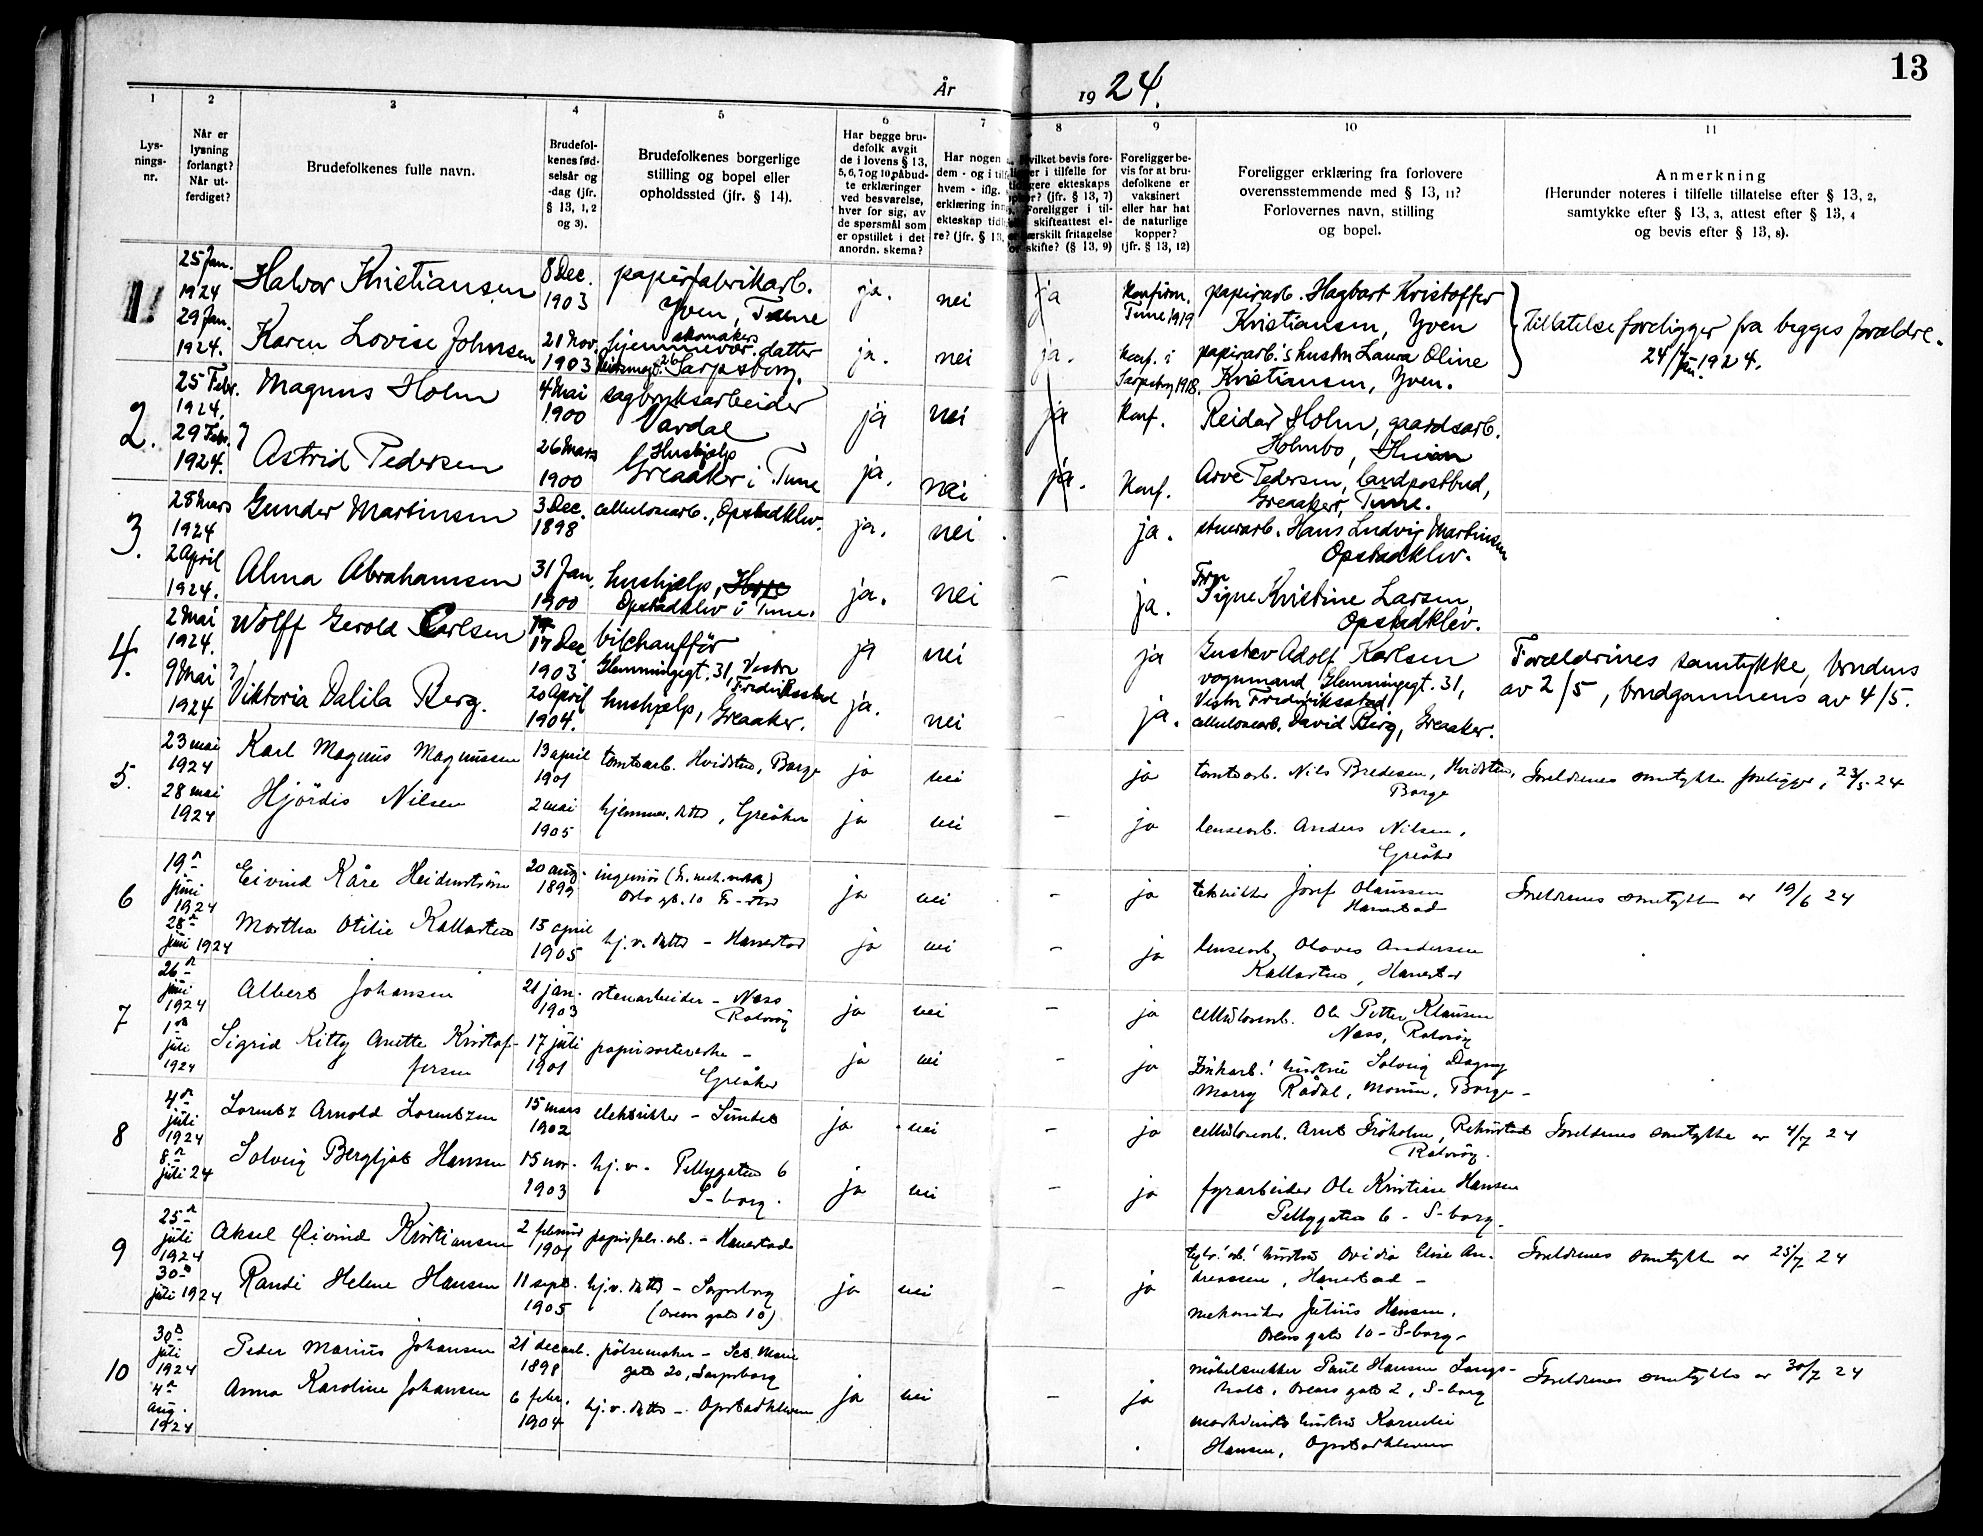 13
År 1924.
1 2 3 4 5 6 7 8 9 10 11
Lys-
nings-
nr.
Når er
lysning
forlangt?
Når ut-
ferdiget?
Brudefolkenes fulle navn.
Brudefol-
kenes fød-
selsår og
-dag (jfr.
§ 13, 1, 2
og 3).
Brudefolkenes borgerlige
stilling og bopel eller
opholdssted (jfr. § 14).
Har begge bru-
defolk avgit
de i lovens § 13,
5, 6, 7 og 10, påbud-
te erklæringer
ved besvarelse,
hver for sig, av
de spørsmål som
er opstillet i det
anordn. skema?
Har nogen
dem - og i
hvem - iflg.
erklæring
ekteskap
re? (jfr. § 13,
hvilket bevis fore-
i tilfelle for
ekteskaps
(jfr. § 13, 7)
Foreligger i til-
skifteattest el-
særskilt fritagelse
skifte? (§ 13, 9)
Foreligger be-
vis for at bru-
defolkene er
vaksinert
eller har hat
de naturlige
kopper?
(jfr. § 13, 12)
Foreligger erklæring fra forlovere
overensstemmende med § 13, 11?
Forlovernes navn, stilling
og bopel.
Anmerkning
(Herunder noteres i tilfelle tillatelse efter § 13, 2,
samtykke efter § 13, 3, attest efter § 13, 4
og bevis efter § 13, 8).
1.
25 Jan.
1924
29 Jan.
1924.
Halvor Kristiansen
8 Dec.
1903
papirfabrikarb.
Yven, Tune
ja. nei ja
Konfirm.
Tune 1919
papirarb. Hagbart Kristoffer
Kristiansen, Yven
Tillatelse foreligger fra begges forældre.
24/1 Jan. 1924.
Karen Lovise Johnsen
21 Nov.
1903
skomakers
hjemmevær. datter
26 Sarpsborg.
ja. nei ja.
Konf. i
Sarpsborg 1918.
papirarb.'s hustru Laura Oline
Kristiansen, Yven.
2.
25 Febr.
1924.
29 Febr.
1924.
Magnus Holm
4 Mai
1900
sagbruksarbeider
Vardal
ja nei ja Konf.
Reidar Holm, gaardsarb.
Holmbo,
Astrid Pedersen
26 Mars
1900
Hushjelp
Greaaker i Tune
ja. nei ja. Konf.
Arve Pedersen, landpostbud,
Greaaker, Tune.
3.
28 Mars
1924
2 April
1924.
Gunder Martinsen
3 Dec.
1898
cellulosearb., Opstadklev.
ja. nei ja.
stuerarb. Hans Ludvig Martinsen
Opstadklev.
Alma Abrahamsen
31 Jan.
1900
hushjelp,
Opstadklev i Tune.
ja. nei - ja.
Fru
Signe Kristine Larsen,
Opstadklev.
4.
2 Mai
1924.
9 Mai
1924
Wolff Gerold Carlsen
17 Dec
1903
bilchauffør
Glemmingegt. 31, Vestre
Fredrikstad
ja nei ja
Gustav Adolf Karlsen
vognmand, Glemmingegt. 31,
Vestre Fredriksstad
Forældrenes samtykke, brudens
av 2/5, brudgommens av 4/5.
Viktoria Dalila Berg.
20 April
1904.
hushjelp, Greaaker.
ja. nei - ja.
cellulosearb. David Berg, Greaaker.
5.
23 mai
1924
28 mai
1924
Karl Magnus Magnussen
13 april
1901
tomtearb. Hvidsten, Borge
ja nei ja
tomtearb. Nils Bredesen, Hvidsten,
Borge
Foreldrenes samtykke foreligger, 23/5 24
Hjördis Nilsen
2 mai
1905
hjemmev. datter, Greåker
ja nei - ja
lensearb. Anders Nilsen,
Greåker
6
19n
juni
1924
28n
juni 1924
Eivind Kåre Heidenstrøm
20 aug.
1899
ingeniør (Fr. mek. verksted)
Oslo gt. 10 Fr-stad
ja nei - ja
tekniker Josef Olaussen
Hanestad
Foreldrenes samtykke av 19/6 24
Martha Otilie Kallasten
15 april
1905
hj.v. datter - Hanestad
ja nei - ja
lensearb. Olaves Andersen
Kallasten, Hanestad
7
26n
juni
1924
1ste
juli
1924
Albert Johansen
21 jan.
1903
stenarbeider - Næss
Rolvsøy
ja nei - ja
cellulosearb. Ole Petter Klausen
Næss, Rolvsøy
Sigrid Kitty Anette Kristof-
fersen
17 juli
1901
papirsorterske -
Greåker
ja nei - ja
Zinkarb.' hustru Solveig Dagny
Marry Rådal, Moum, Borge -
8
4n
juli
1924
8n
juli 24
Lorentz Arnold Lorentzen
15 mars
1902
elektriker - Sundet
ja nei - ja
cellulosearb. Arnt Frøholm, Rekustad
Rolvsøy.
Foreldrenes samtykke av 4/7 24
Solveig Bergljot Hansen
15 nov.
1903
hj.v. - Pellygaten 6
S-borg.
ja nei - ja
fyrarbeider Ole Kristian Hansen
Pellygaten 6 - S-borg.
9
25n
juli
1924
30n
juli 1924
Aksel Øivind Kristiansen
2 februar
1901
papirfabr.arb. - Hanestad
hustru Ovidia Elise An-
dreassen, Hanestad -
Foreldrenes samtykke av 25/7 24
Randi Helene Hansen
11 sept.
1905
hj.v. datter - Sarpsborg
(Olavs gate 10)
ja nei - ja
mekaniker Julius Hansen,
Olavs gate 10 - S-borg -
10
30n
juli
1924
4n
aug.
1924
Peder Marius Johansen
21 decemb.
1898
pølsemaker - Sct. Marie
gate 20, Sarpsborg
møbelsnekker Paul Hansen Langs-
holt, Olavs gate 2, S-borg
Foreldrenes samtykke av 30/7 24
Anna Karoline Johansen
6 febr.
1904
hj.v. datter - Opstadkleven
ja nei - ja
maskinists hustru Kornelie
Hansen, Opstadkleven